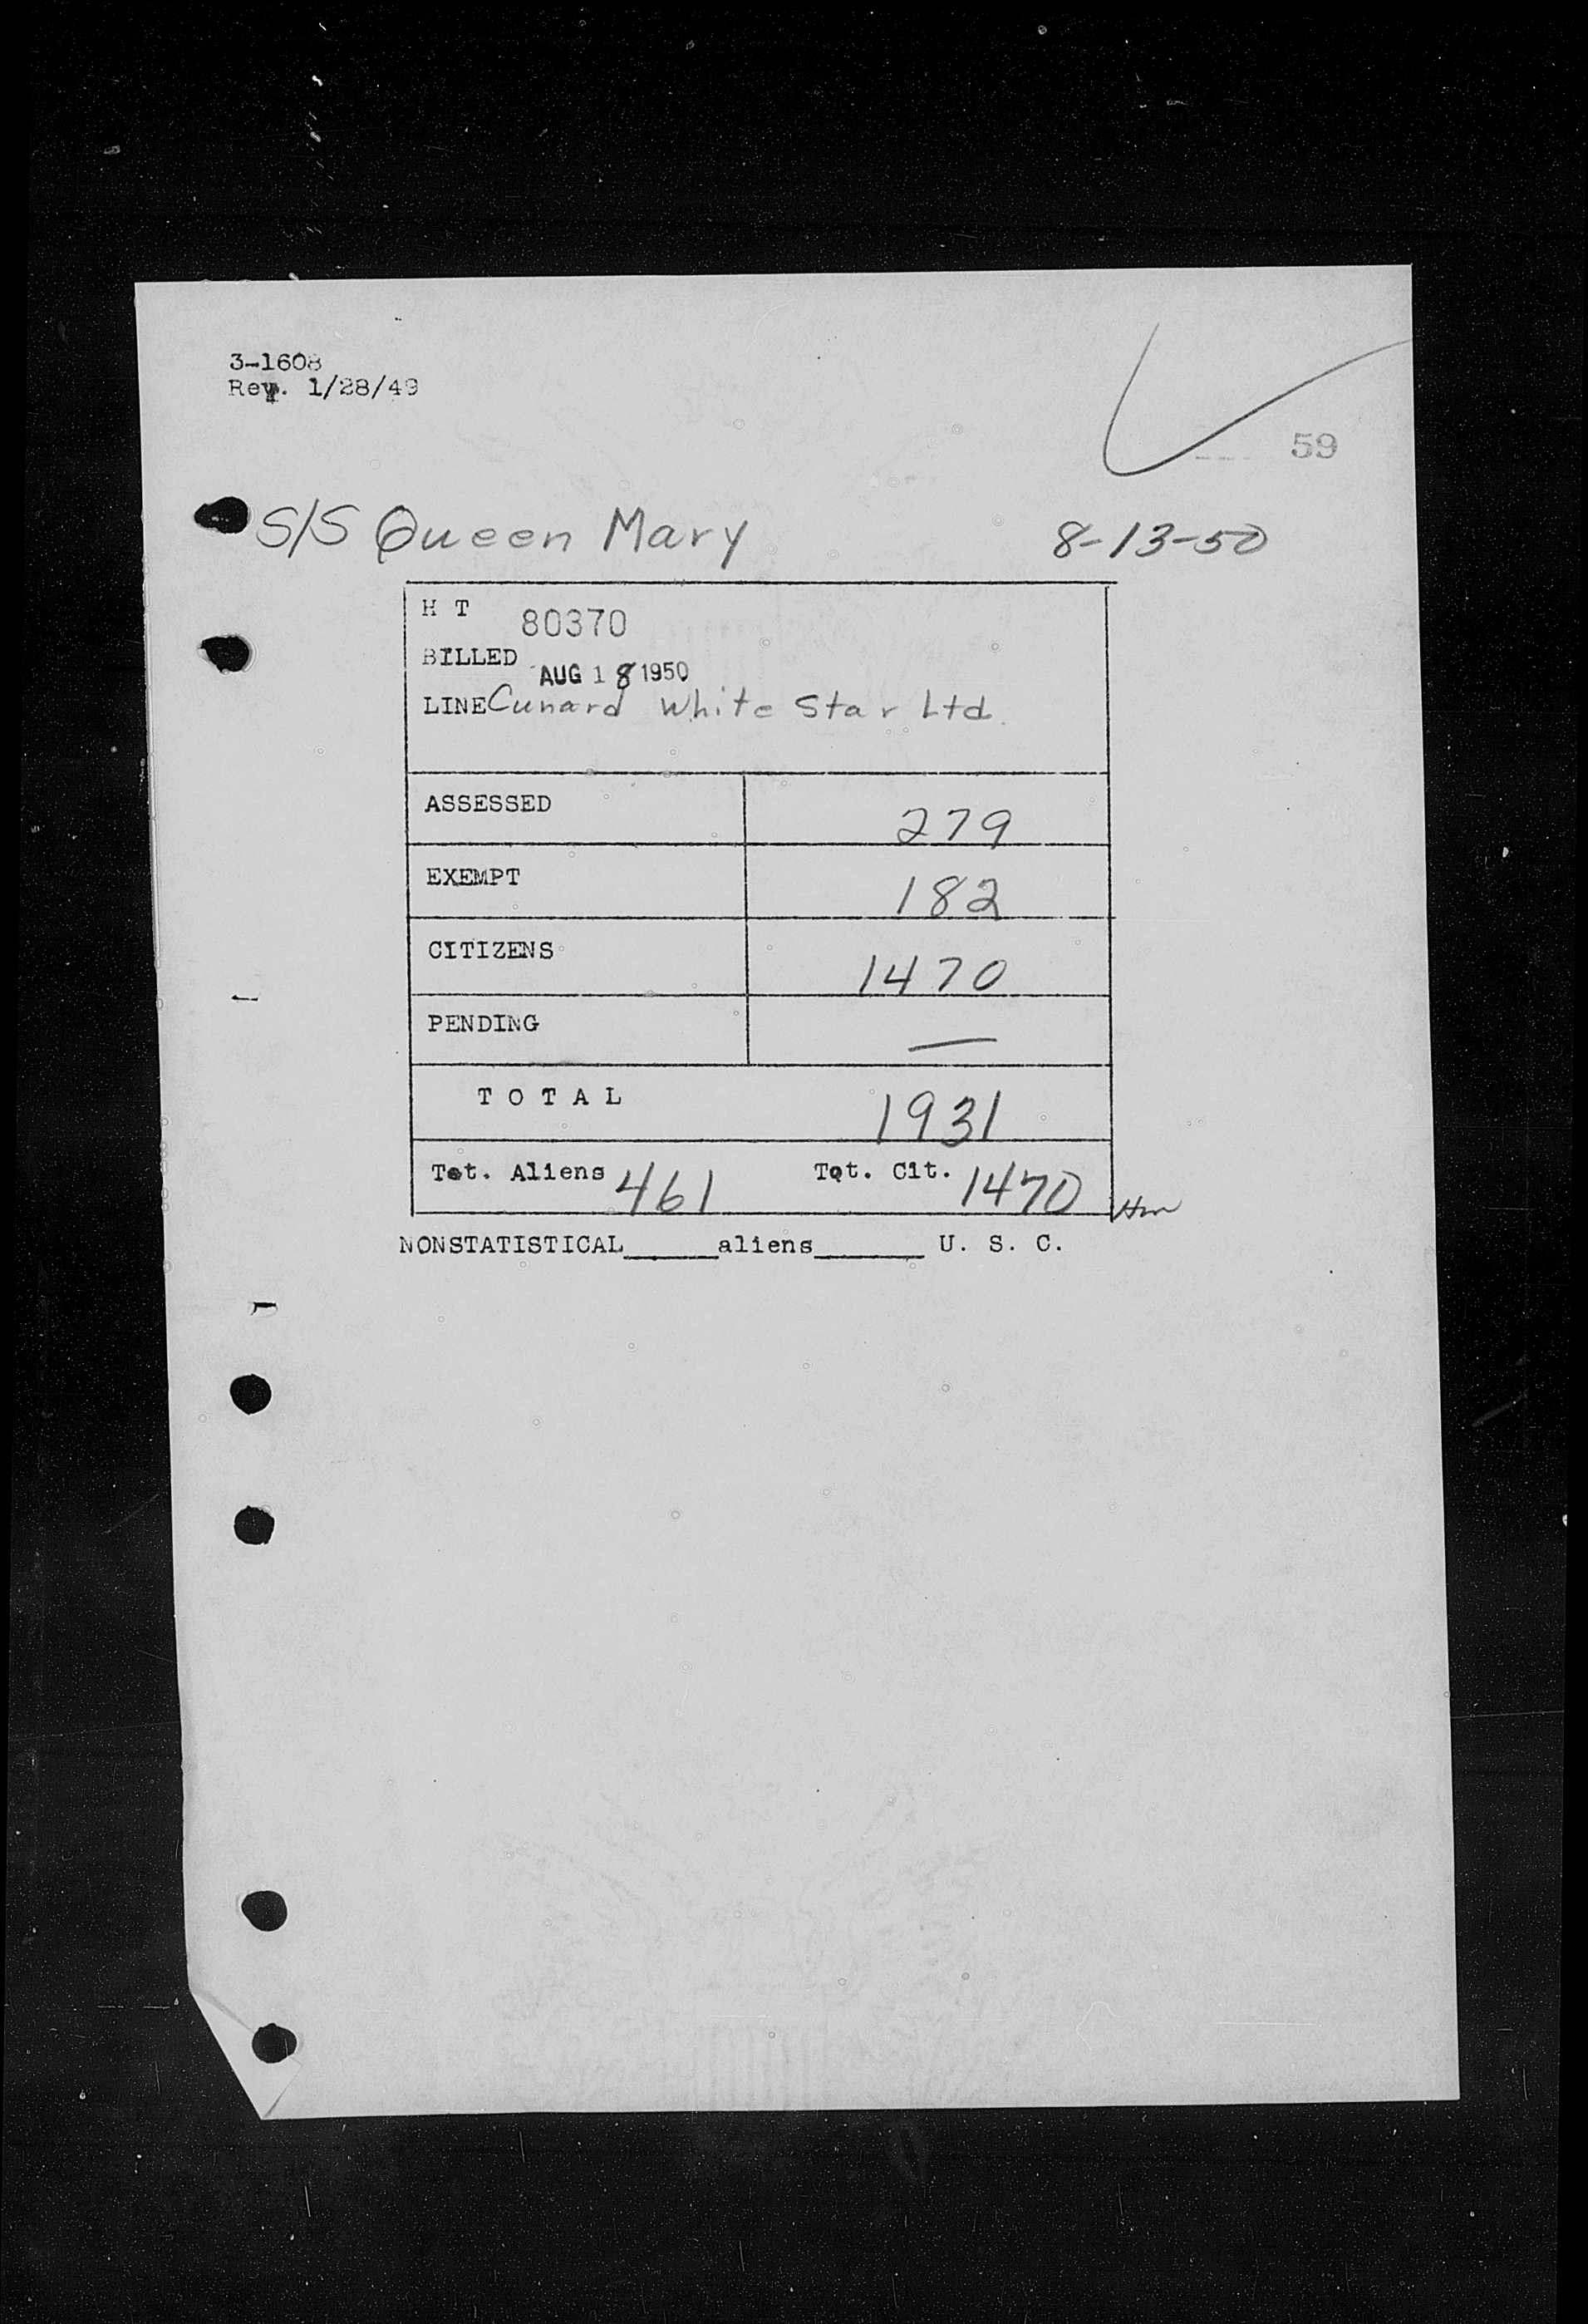 3-1608
Rev. 1/28/49
59
S/S Queen Mary 8-13-50
H T 80370
BILLED AUG 18 1950
LINE Cunard White Star Ltd.
ASSESSED 279
EXEMPT 182
CITIZENS 1470
PENDING —
TOTAL 1931
Tot. Aliens 461 Tot. Cit. 1470
NONSTATISTICAL______aliens_______ U. S. C.